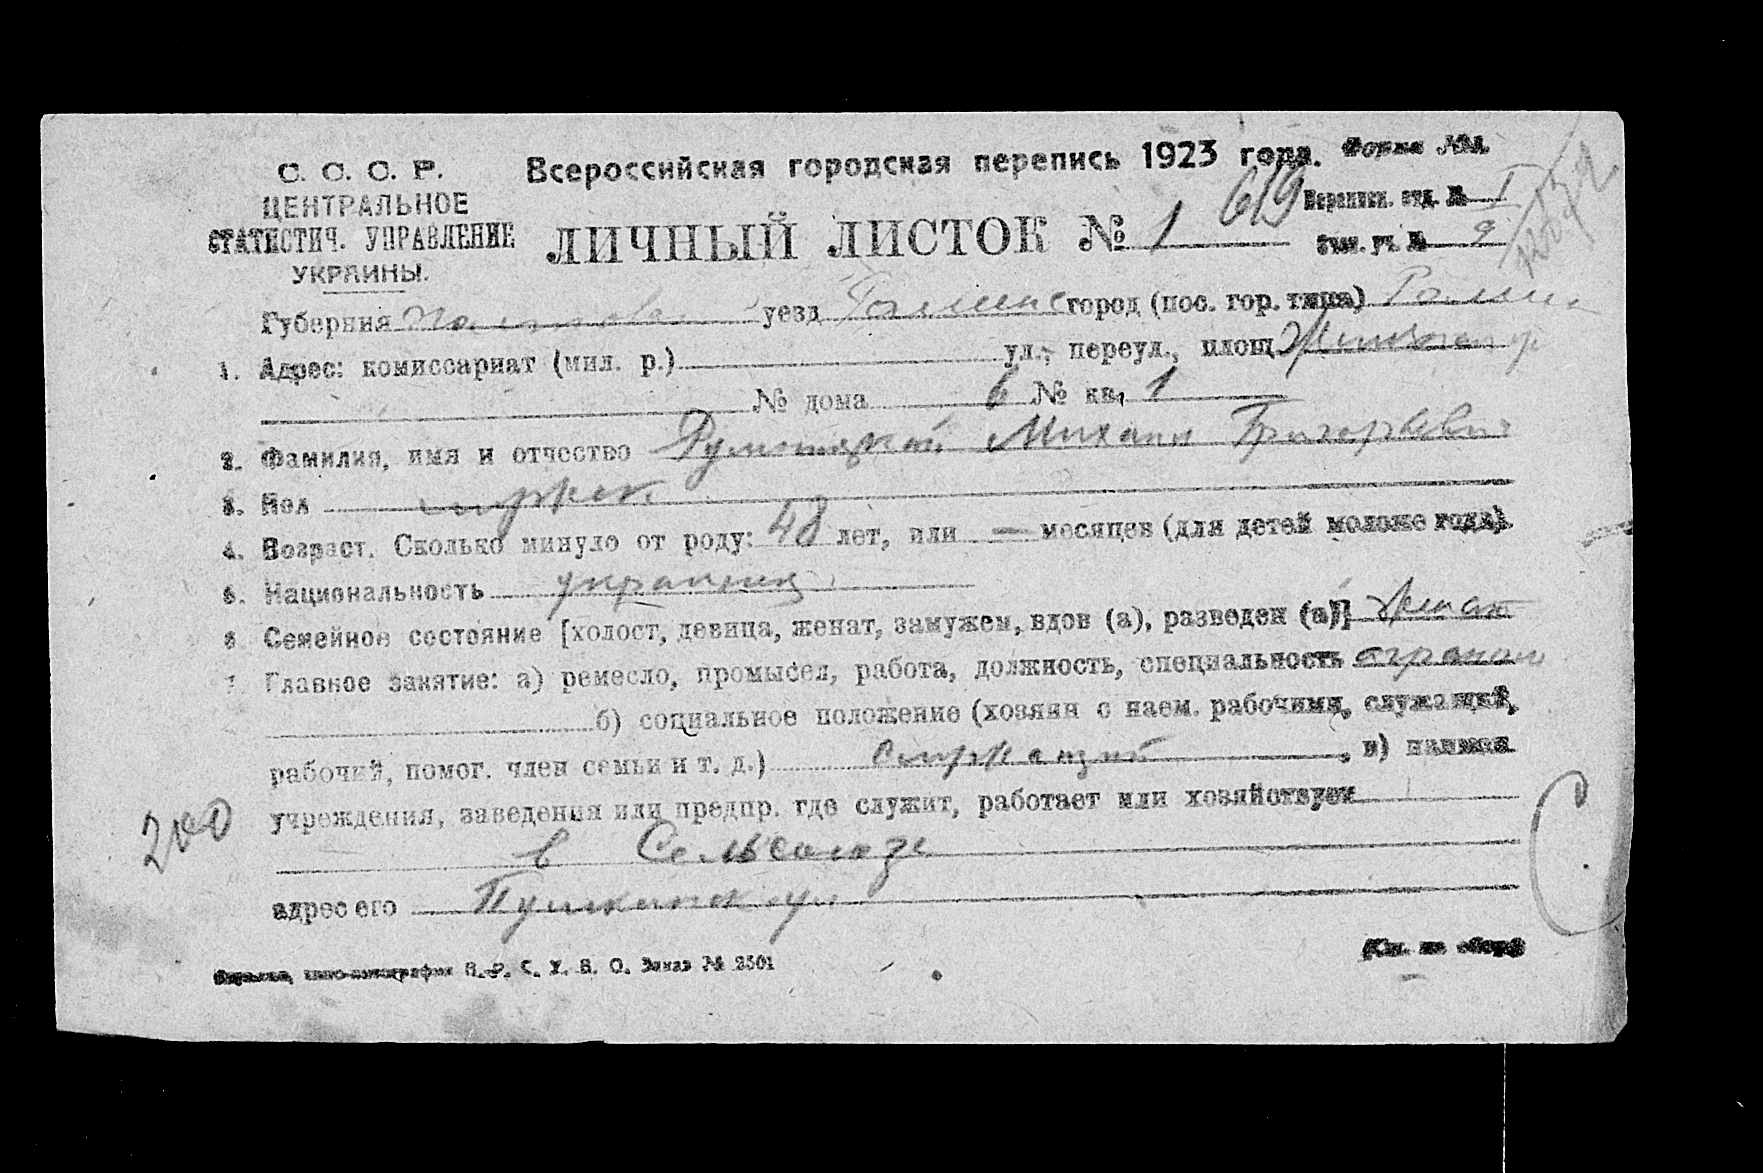 С. С. С. Р.
ЦЕНТРАЛЬНОЕ
СТАТИСТИЧ. УПРАВЛЕНИЕ
УКРАИНЫ.
Всероссийская городская перепись 1923 года. Форма №1.
ЛИЧНЫЙ ЛИСТОК № 1 619
Переписн. отд. № I
Счетн. уч. № 9
Губерния Полтавская уезд Роменс город (пос. гор. типа) Ромны
1. Адрес: комиссариат (мил. р.) ул., переул., площ.
№ дома 6 № кв. 1
2. Фамилия, имя и отчество Михаил Григорьевич
3. Пол мужск.
4. Возраст. Сколько минуло от роду: 48 лет, или — месяцев (для детей моложе года).
5. Национальность украинец
6 Семейное состояние [холост, девица, женат, замужем, вдов (а), разведен (а)] женат
7. Главное занятие: а) ремесло, промысел, работа, должность, специальность агроном
б) социальное положение (хозяин с наем. рабочими, служащий,
рабочий, помог. член семьи и т. д.) служащий, в) наимен.
учреждения, заведения или предпр. где служит, работает или хозяйствует
в Сельсоюзе
адрес его Пушкинск ул.
200
С. Х. В. О. Заказ № 2501
(См. на обор.)